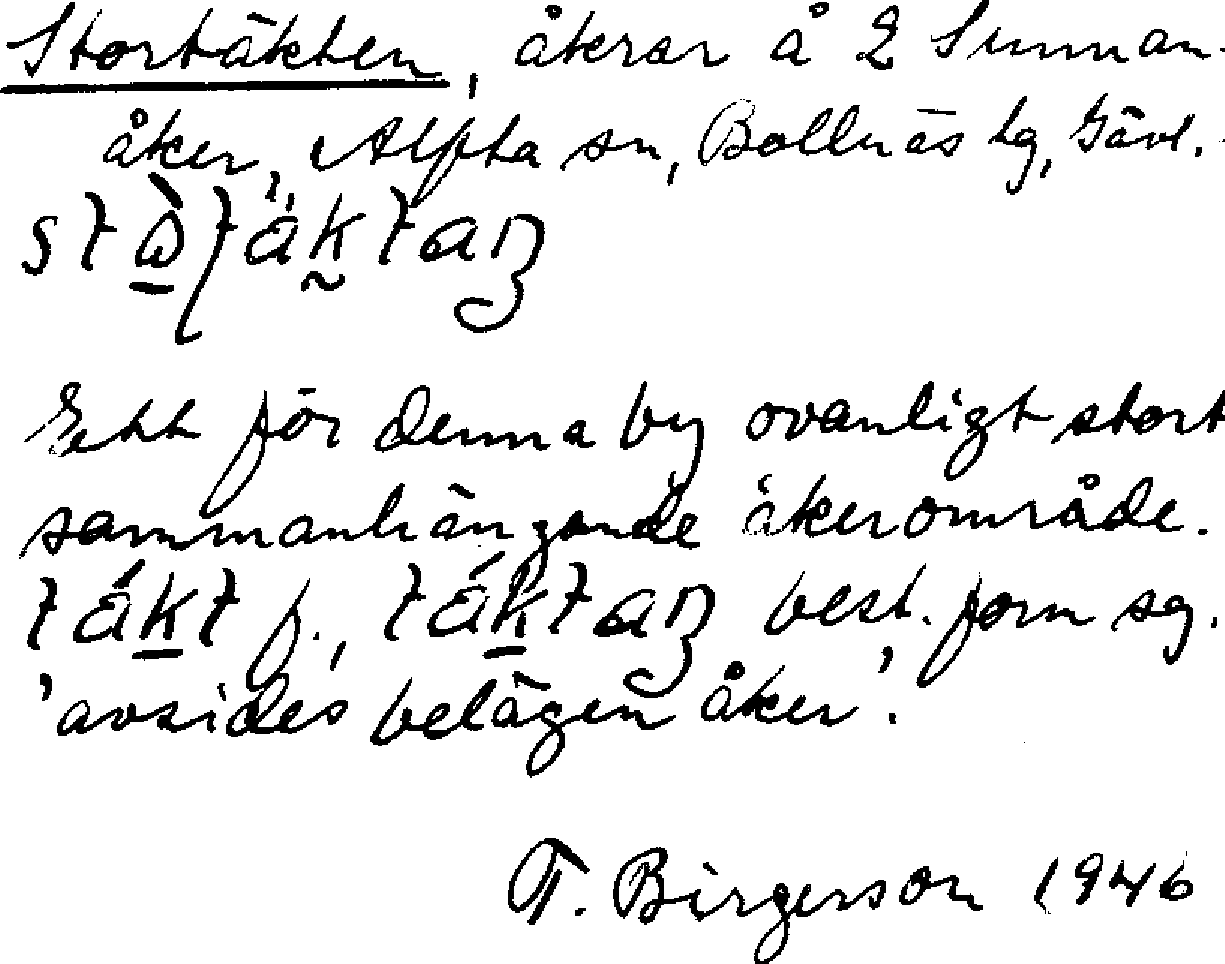 Stortäkten, åkrar å 2 Sunnan-
åker, Alfta sn, Bollnäs tg, Gävl.
Ett för denna by ovanligt stort
sammanhängande åkerområde.
f., best. form sg.
'avsides belägen åker'.
T. Birgerson 1946